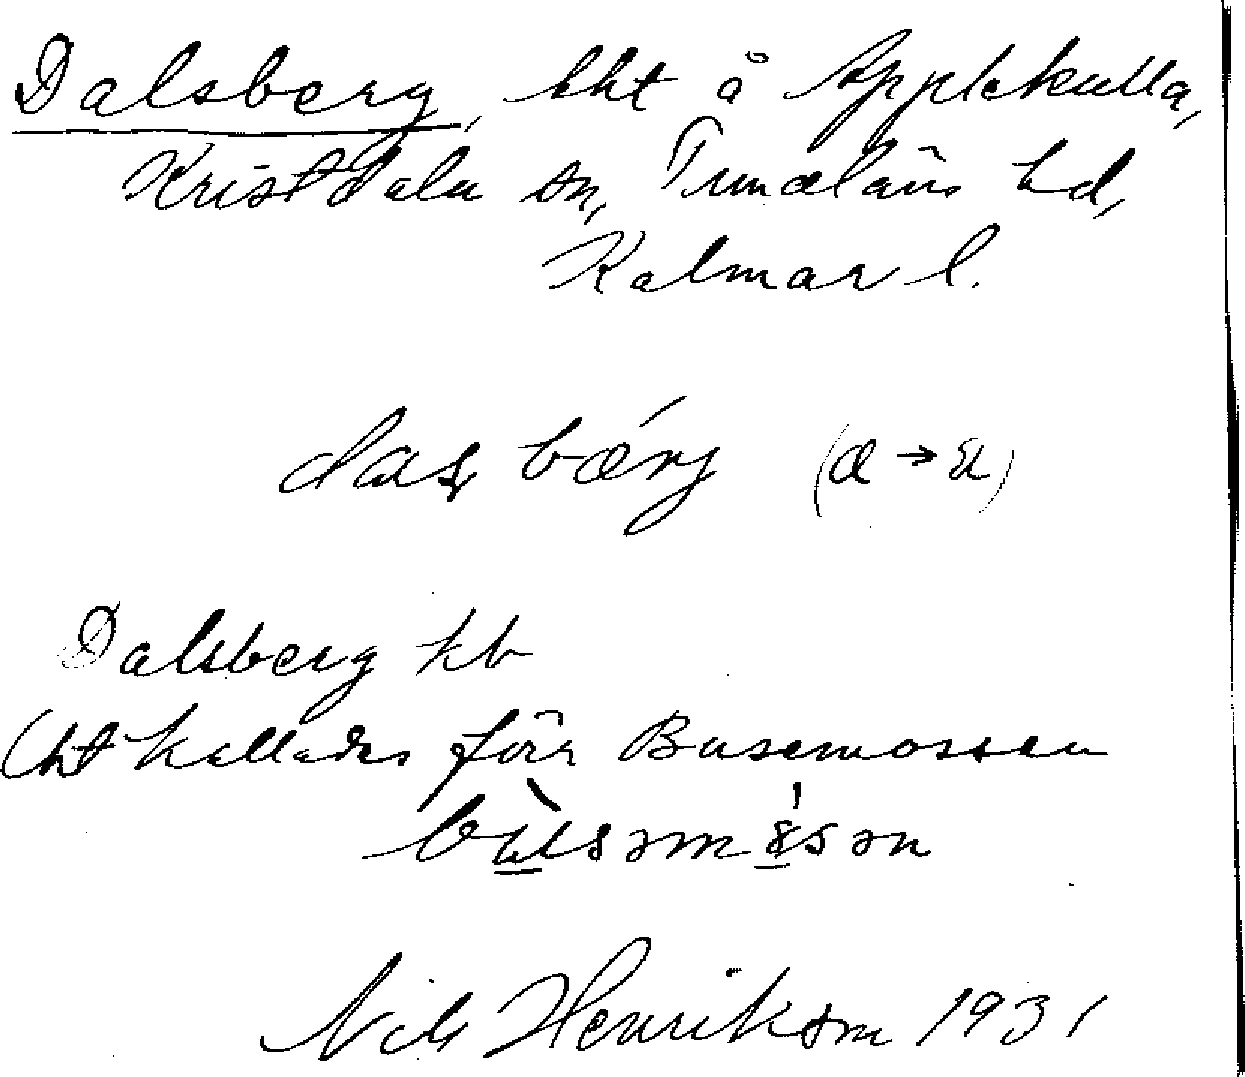 Dalsberg, lht å Applekulla,
Kristdala sn, Tunaläns hd,
Kalmar l.
bærj (æ → a)
Dalsberg kb
(ht kallades förr Busemossen
Nils Henrikson 1931